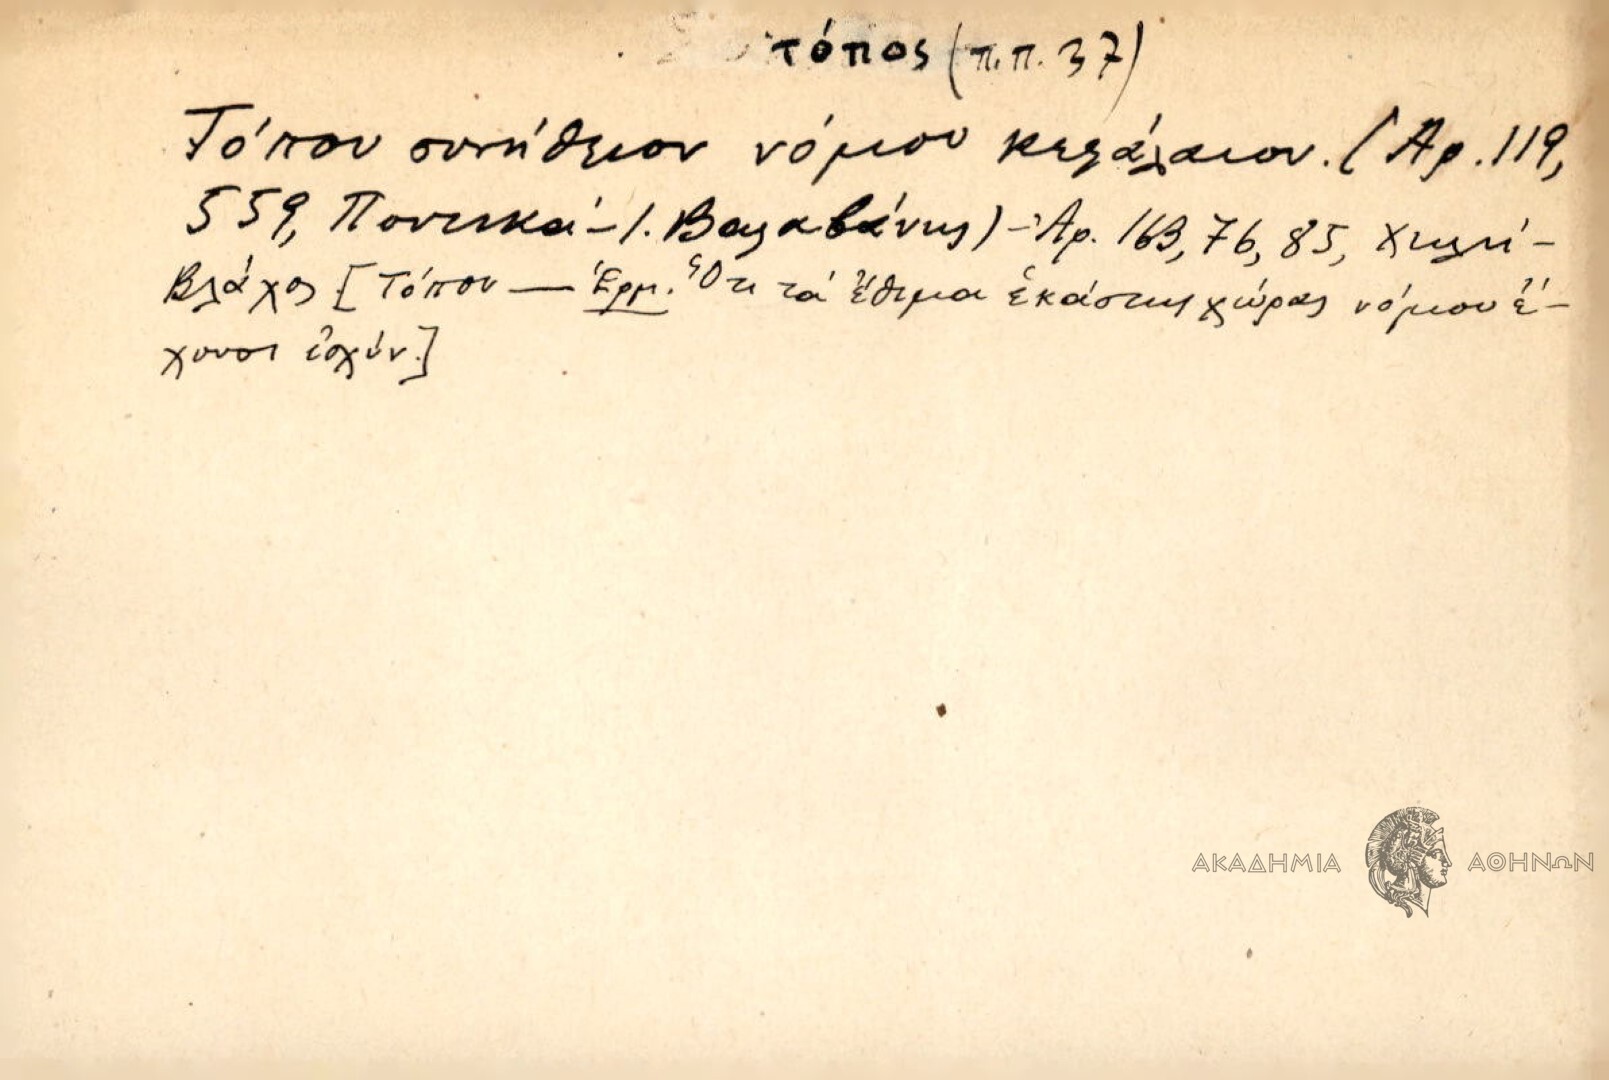 τόπος (π.π. 37)
Τόπου συνήθειον νόμιου κεφάλαιον. (Αρ. 119,
559, Ποντικά - Ι. Βαλαβάνης) - Αρ. 163, 76, 85,
Βλάχος [Τόπου — Ἑρμ. Ὅτι τά ἔθιμα ἑκάστης χώρας νόμιου ἔ-
χουσι ἰσχύν.]
ΑΚΑΔΗΜΙΑ ΑΘΗΝΩΝ